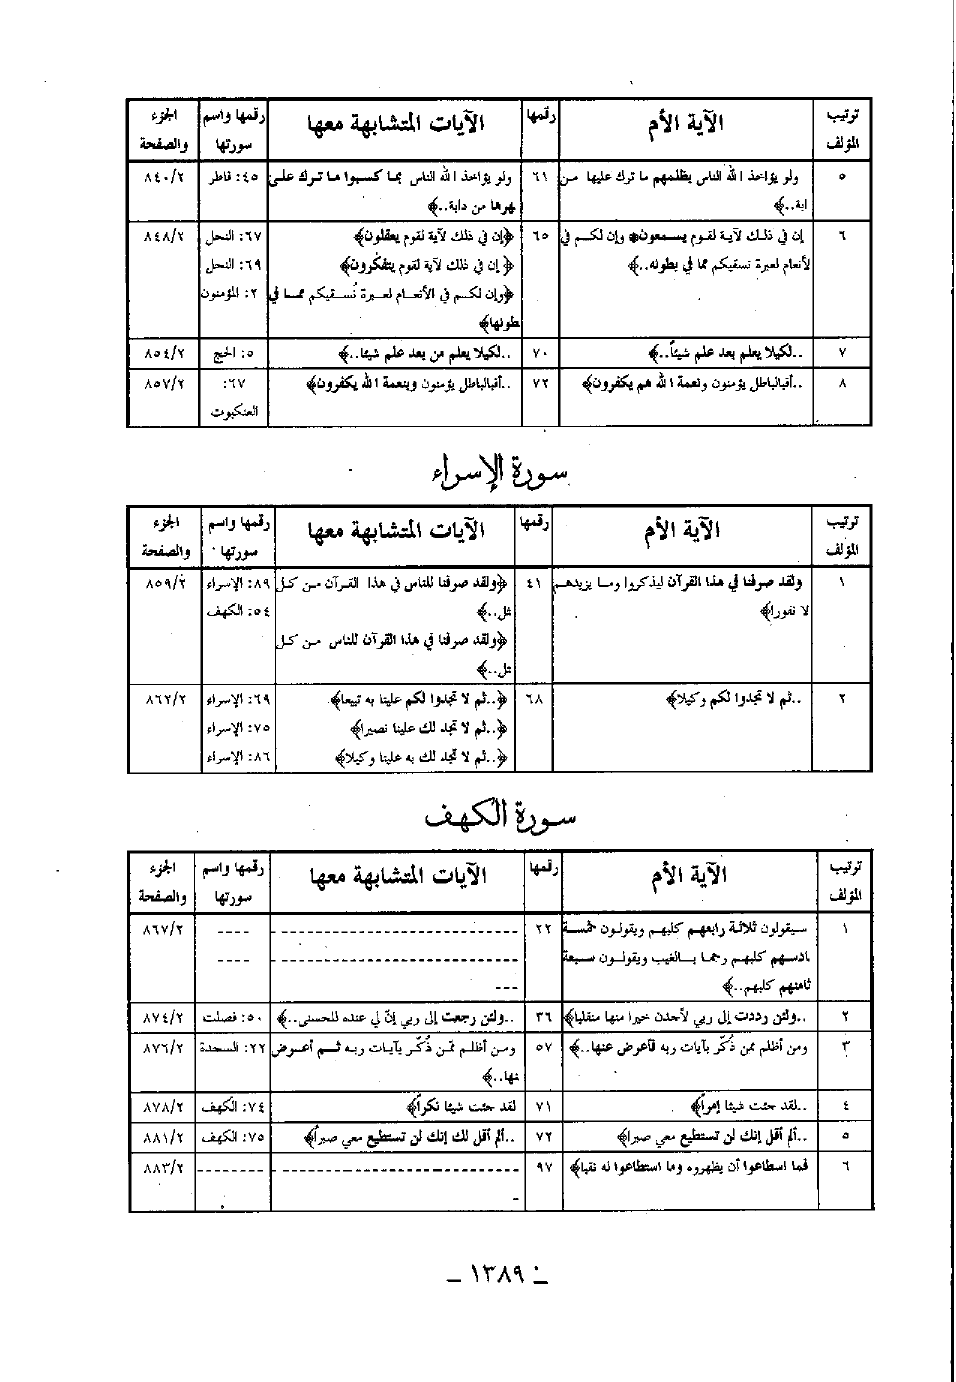 ترتيب المؤلف | الآية الأم | رقمها | الآيات المتشابهة معها | رقمها واسم سورتها | الجزء والصفحة
٥ | ولو يؤاخذ الله الناس بظلمهم ما ترك عليها من | ٦١ | ولو يؤاخذ الله الناس بما كسبوا ما ترك على | ٤٥: فاطر | ٨٤٠/٢
ابة..﴾ | هرها من دابة..﴾
٦ | إن في ذلك لآية لقوم يسمعون﴾ وإن لكم في | ٦٥ | ﴿إن في ذلك لآية لقوم يعقلون﴾ | ٦٧: النحل | ٨٤٨/٢
لأنعام لعبرة نسقيكم مما في بطونه..﴾ | ﴿إن في ذلك لآية لقوم يتفكرون﴾ | ٦٩: النحل
﴿وإن لكم في الأنعام لعبرة نُسقيكم مما في | ٢: المؤمنون
طونها﴾
٧ | ..لكيلا يعلم بعد علم شيئاً..﴾ | ٧٠ | ..لكيلا يعلم من بعد علم شيئا..﴾ | ٥: الحج | ٨٥٤/٢
٨ | ..أفبالباطل يؤمنون ونعمة الله هم يكفرون﴾ | ٧٢ | ..أفبالباطل يؤمنون وبنعمة الله يكفرون﴾ | ٦٧: | ٨٥٧/٢
العنكبوت
سورة الإسراء
ترتيب المؤلف | الآية الأم | رقمها | الآيات المتشابهة معها | رقمها واسم سورتها | الجزء والصفحة
١ | ولقد صرفنا في هذا القرآن ليذكروا وما يزيدهم | ٤١ | ﴿ولقد صرفنا للناس في هذا القرآن من كل | ٨٩: الإسراء | ٨٥٩/٢
لا نفورا﴾ | ثل..﴾ | ٥٤: الكهف
﴿ولقد صرفنا في هذا القرآن للناس من كل
ثل..﴾
٢ | ..ثم لا تجدوا لكم وكيلا﴾ | ٦٨ | ﴿..ثم لا تجدوا لكم علينا به تبيعا﴾ | ٦٩: الإسراء | ٨٦٢/٢
﴿..ثم لا تجد لك علينا نصيرا﴾ | ٧٥: الإسراء
﴿..ثم لا تجد لك به علينا وكيلا﴾ | ٨٦: الإسراء
سورة الكهف
ترتيب المؤلف | الآية الأم | رقمها | الآيات المتشابهة معها | رقمها واسم سورتها | الجزء والصفحة
١ | سيقولون ثلاثة رابعهم كلبهم ويقولون خمسة | ٢٢ | -------------------- | ---- | ٨٦٧/٢
ادسهم كلبهم رجما بالغيب ويقولون سبعة | -------------------- | ----
ثامنهم كلبهم..﴾ | ---
٢ | ..ولئن رددت إلى ربي لأجدن خيرا منها منقلبا﴾ | ٣٦ | ..ولئن رجعت إلى ربي إنّ لي عنده للحسنى..﴾ | ٥٠: فصلت | ٨٧٤/٢
٣ | ومن أظلم ممن ذُكّر بآيات ربه فأعرض عنها..﴾ | ٥٧ | ومن أظلم ممّن ذُكّر بآيات ربه ثم أعرض | ٢٢: السجدة | ٨٧٦/٢
نها..﴾
٤ | ..لقد جئت شيئا إمراً﴾ | ٧١ | لقد جئت شيئا نكراً﴾ | ٧٤: الكهف | ٨٧٨/٢
٥ | ..ألم أقل إنك لن تستطيع معي صبراً﴾ | ٧٢ | ..ألم أقل لك إنك لن تستطيع معي صبراً﴾ | ٧٥: الكهف | ٨٨١/٢
٦ | فما اسطاعوا أن يظهروه وما استطاعوا له نقبا﴾ | ٩٧ | -------------------- | -------- | ٨٨٣/٢
-
– ١٣٨٩ –